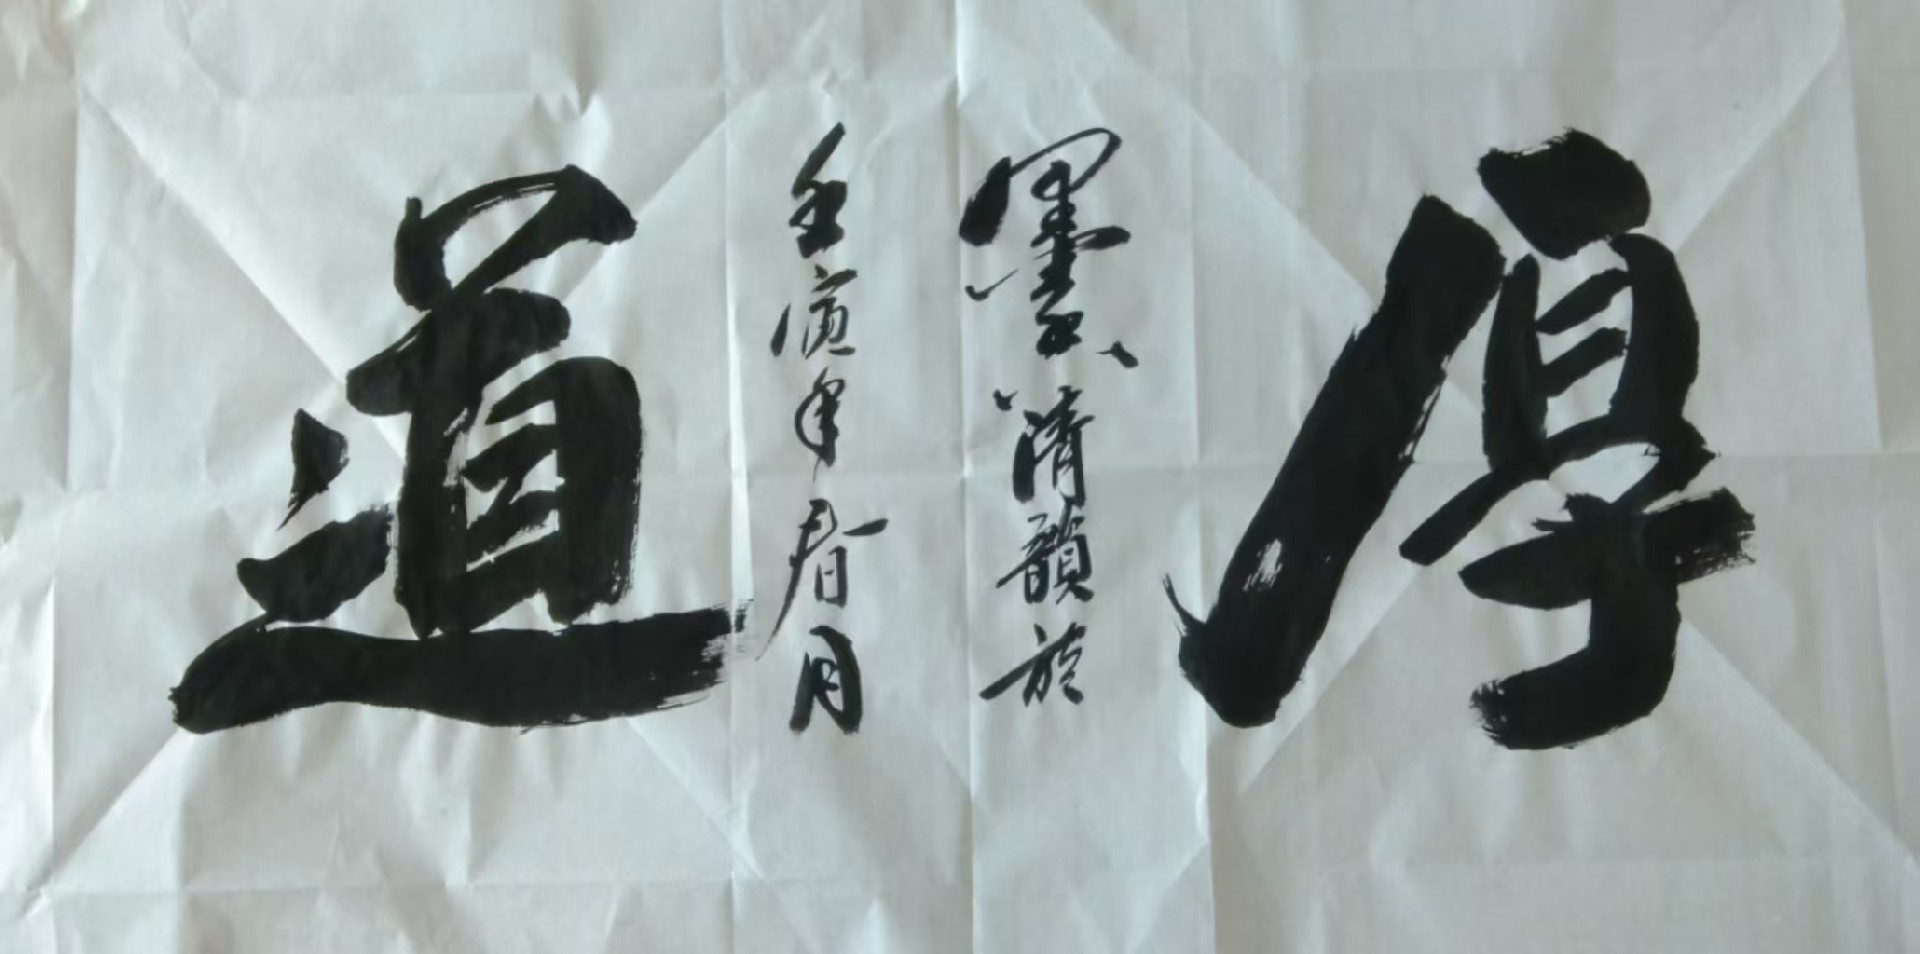 厚
墨清韻於
壬寅年春月
道